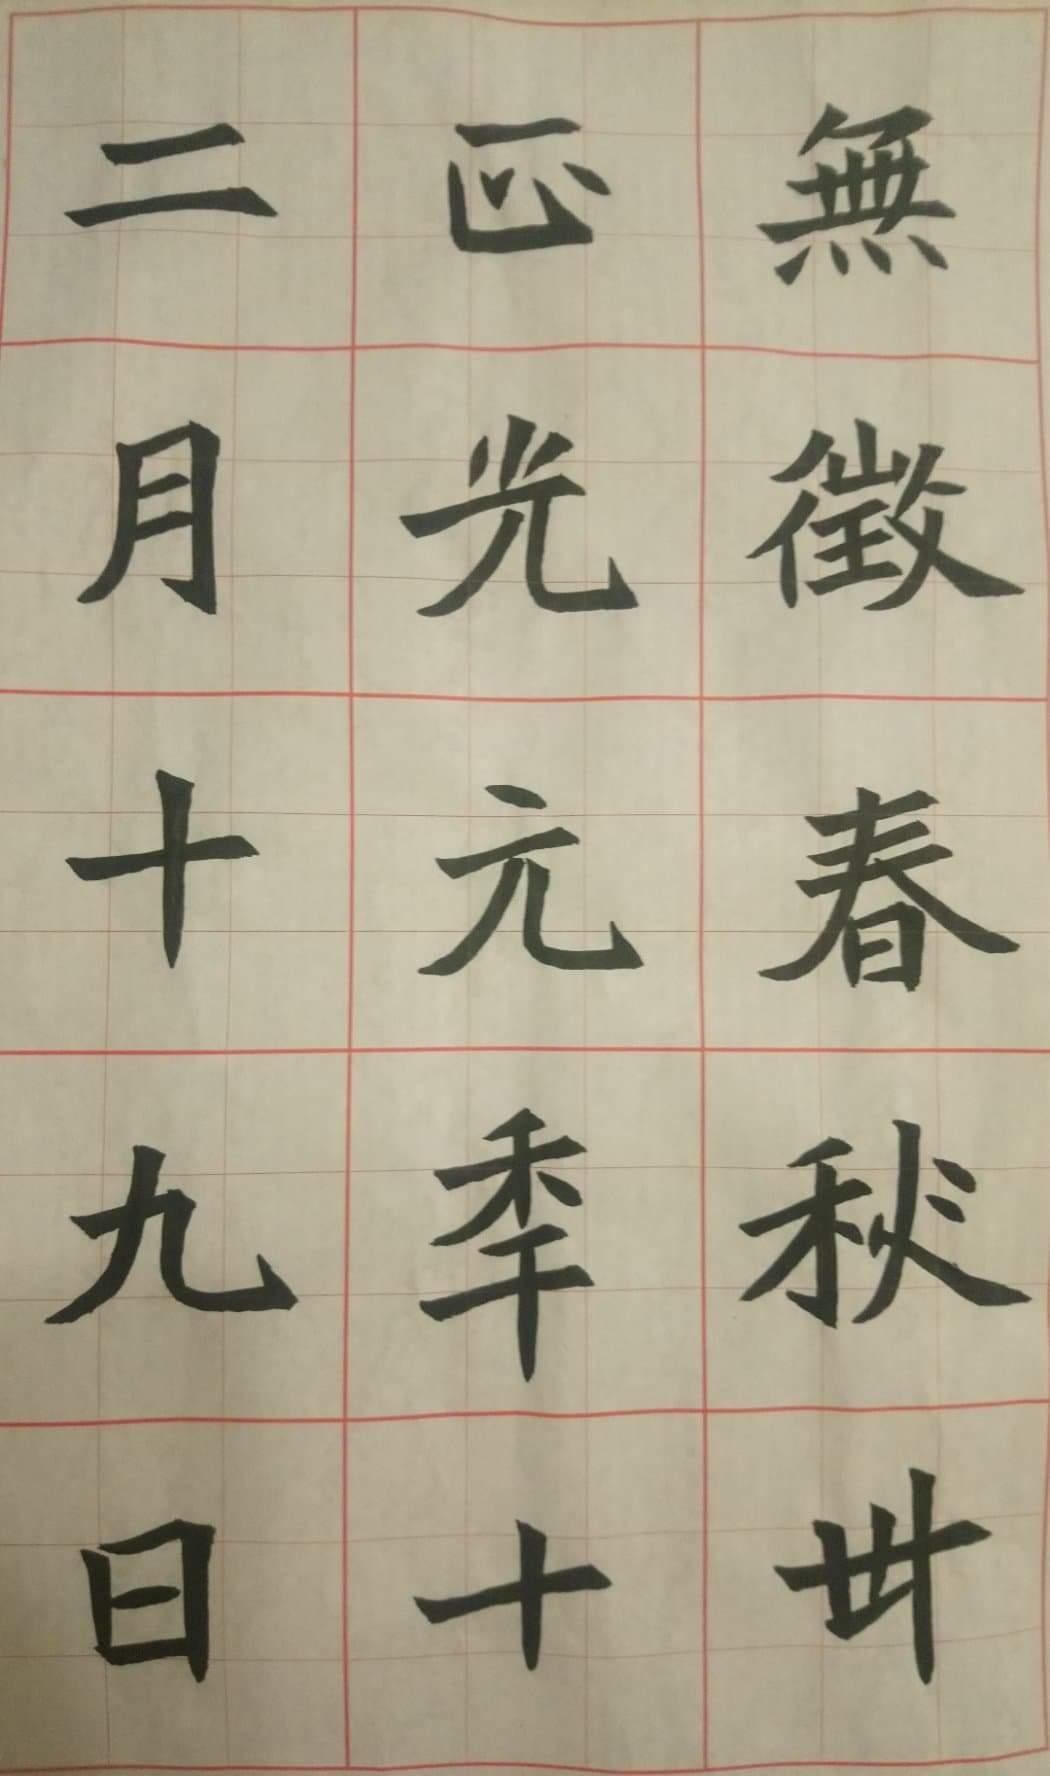 無徵春秋卅
正光元秊十
二月十九日